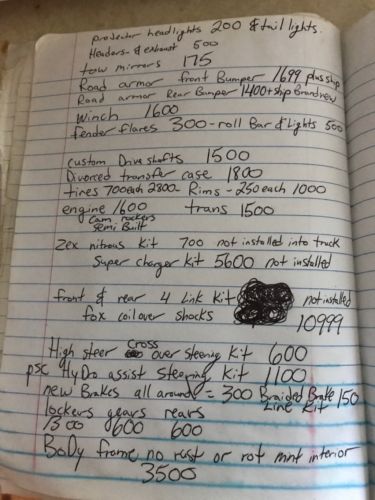 projector headlights 200 & tail lights.
Headers & exhaust 500
tow mirrors 175
Road armor front Bumper 1699 plus ship
Road armor Rear Bumper 1400 + ship Brand new
Winch 1600
fender flares 300 - roll Bar & Lights 500
custom Drive shafts 1500
Divorced transfer case 1800
tires 700 each 2800 - Rims - 250 each 1000
engine 1600 trans 1500
Cam, rockers
semi Built
Zex nitrous Kit 700 not installed into truck
Super charger Kit 5600 not installed
front & rear 4 Link Kit not installed
fox coil over shocks 10999
High steer cross over steering Kit 600
psc HyDro assist steering Kit 1100
new Brakes all around = 300 Braided Brake 150
Line Kit
lockers gears rears
1300 600 600
Body frame no rust or rot mint interior
3500